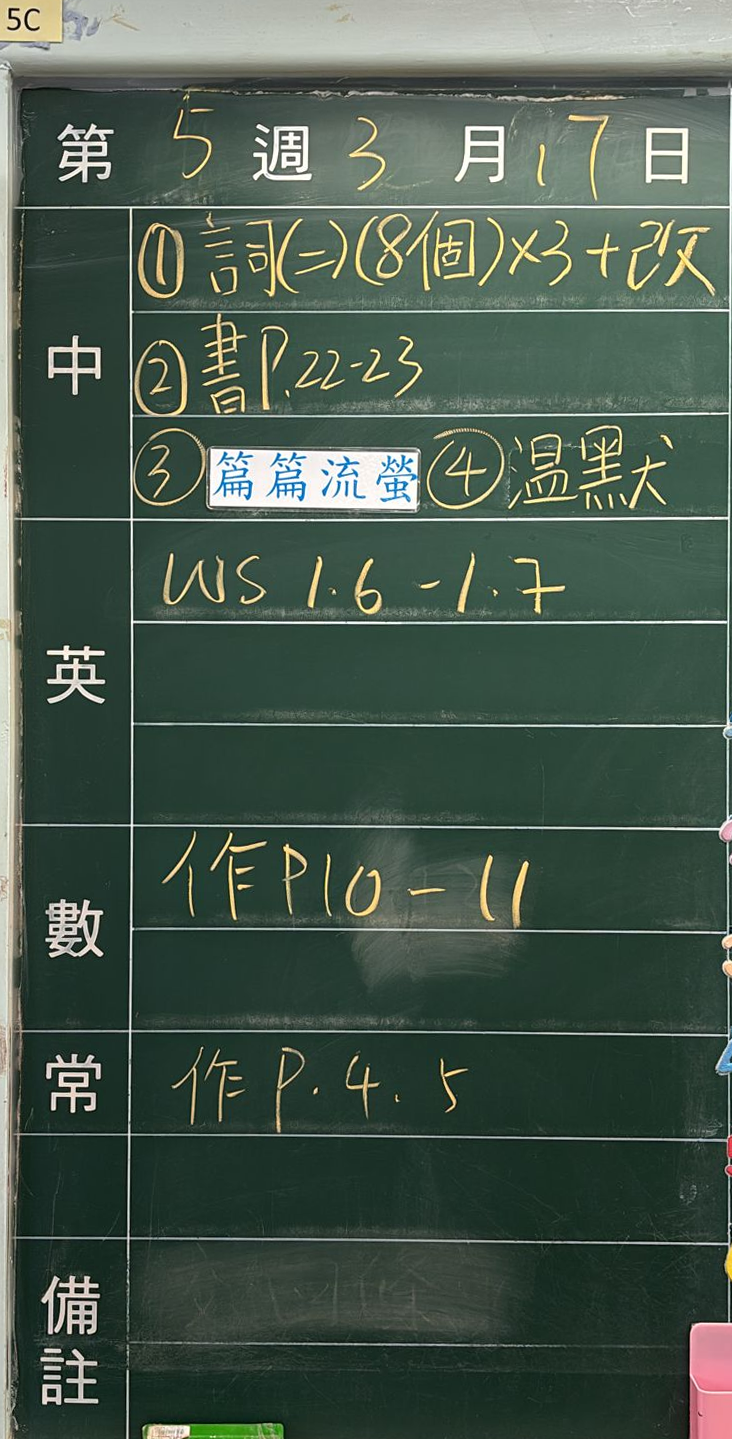 5C
第 5 週 3 月 17 日
中
① 詞(二)(8個)×3+改
② 書P.22-23
③ 篇篇流螢 ④ 温默
英
WS 1.6 - 1.7
數
作P10-11
常
作P.4.5
備註